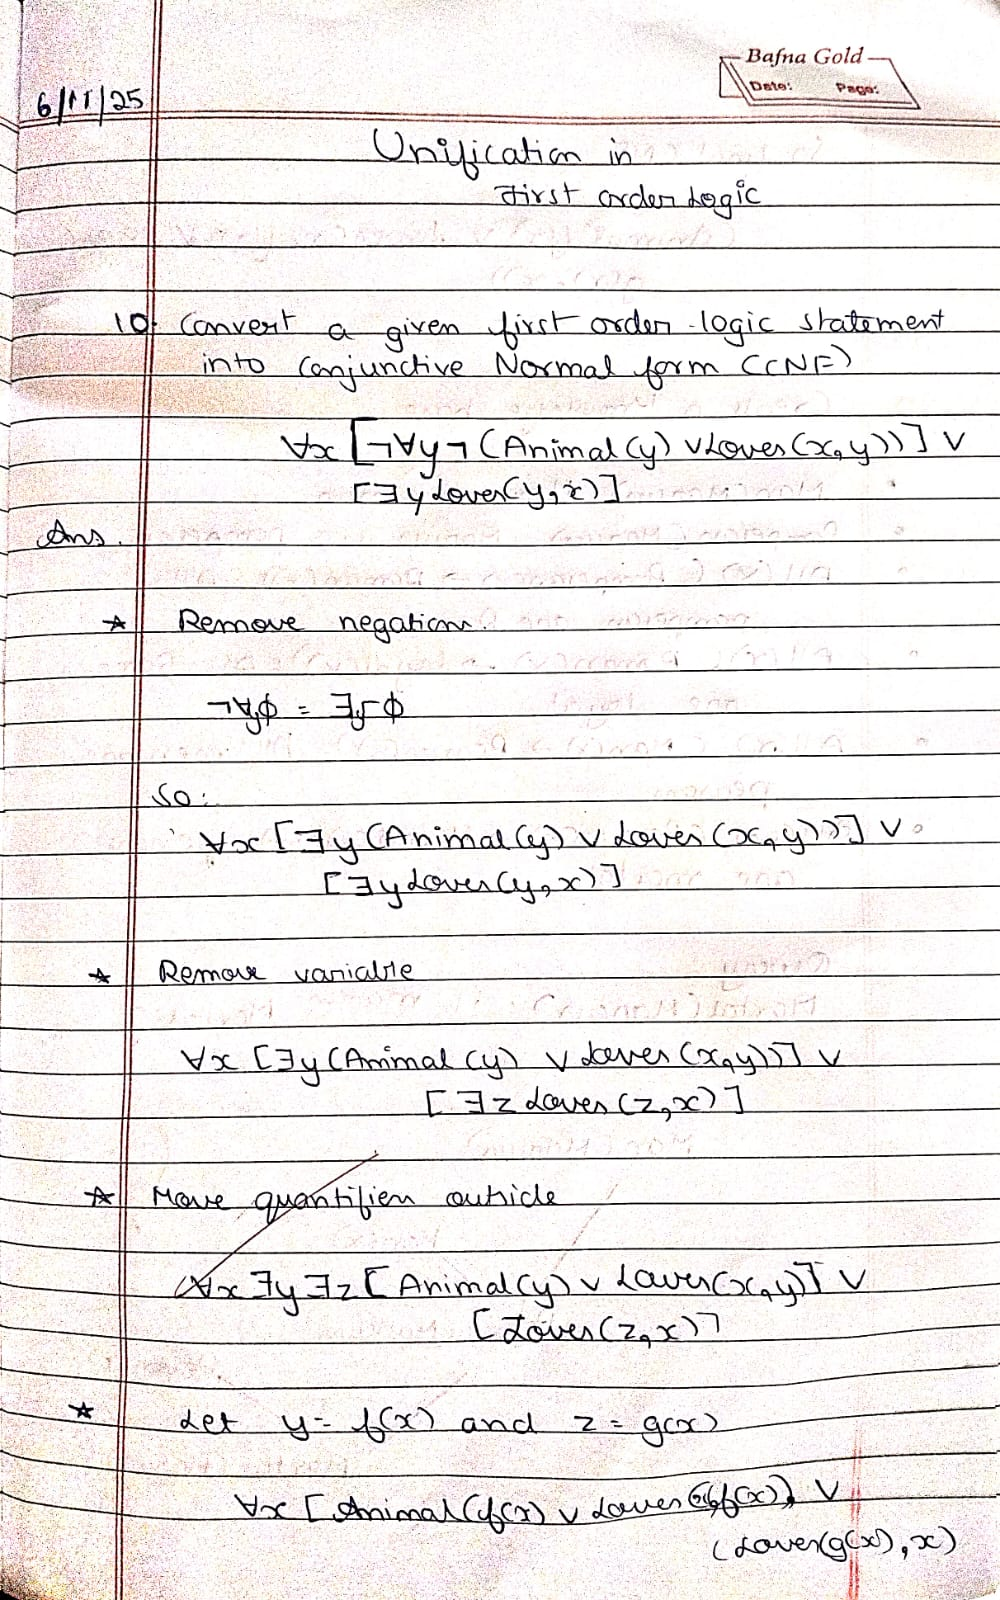 Bafna Gold
Date: Page:
6/11/25
Unification in
First order Logic
10. Convert a given first order logic statement
into Conjunctive Normal form (CNF)
∀x [¬∀y¬ (Animal(y) ∨ Loves(x, y))] ∨
[∃y Loves(y, x)]
Ans.
☆ Remove negations.
¬∀yφ = ∃yφ
So:
∀x [∃y (Animal(y) ∨ Loves (x, y))] ∨
[∃y Loves(y, x)]
☆ Remove variable
∀x [∃y (Animal (y) ∨ Loves (x, y))] ∨
[∃z Loves (z, x)]
☆ Move quantifier outside
∀x ∃y ∃z [Animal(y) ∨ Loves(x, y)] ∨
[Loves(z, x)]
☆ Let y = f(x) and z = g(x)
∀x [Animal(f(x) ∨ Loves f(x)) ∨
(Loves(g(x), x)